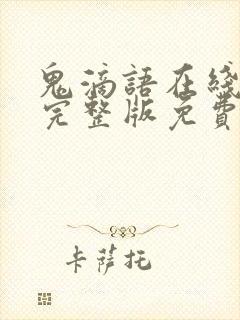 鬼滴語在綫
完整版免費
卡薩托